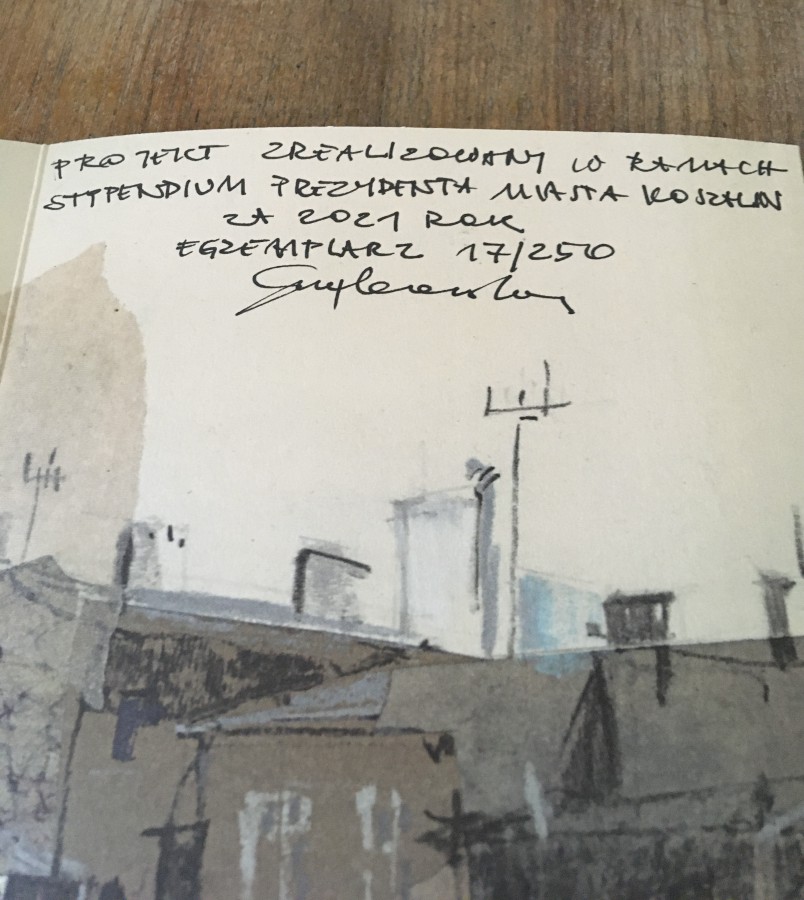 PROJEKT ZREALIZOWANY W RAMACH
STYPENDIUM PREZYDENTA MIASTA KOSZALIN
ZA 2021 ROK
EGZEMPLARZ 17/250